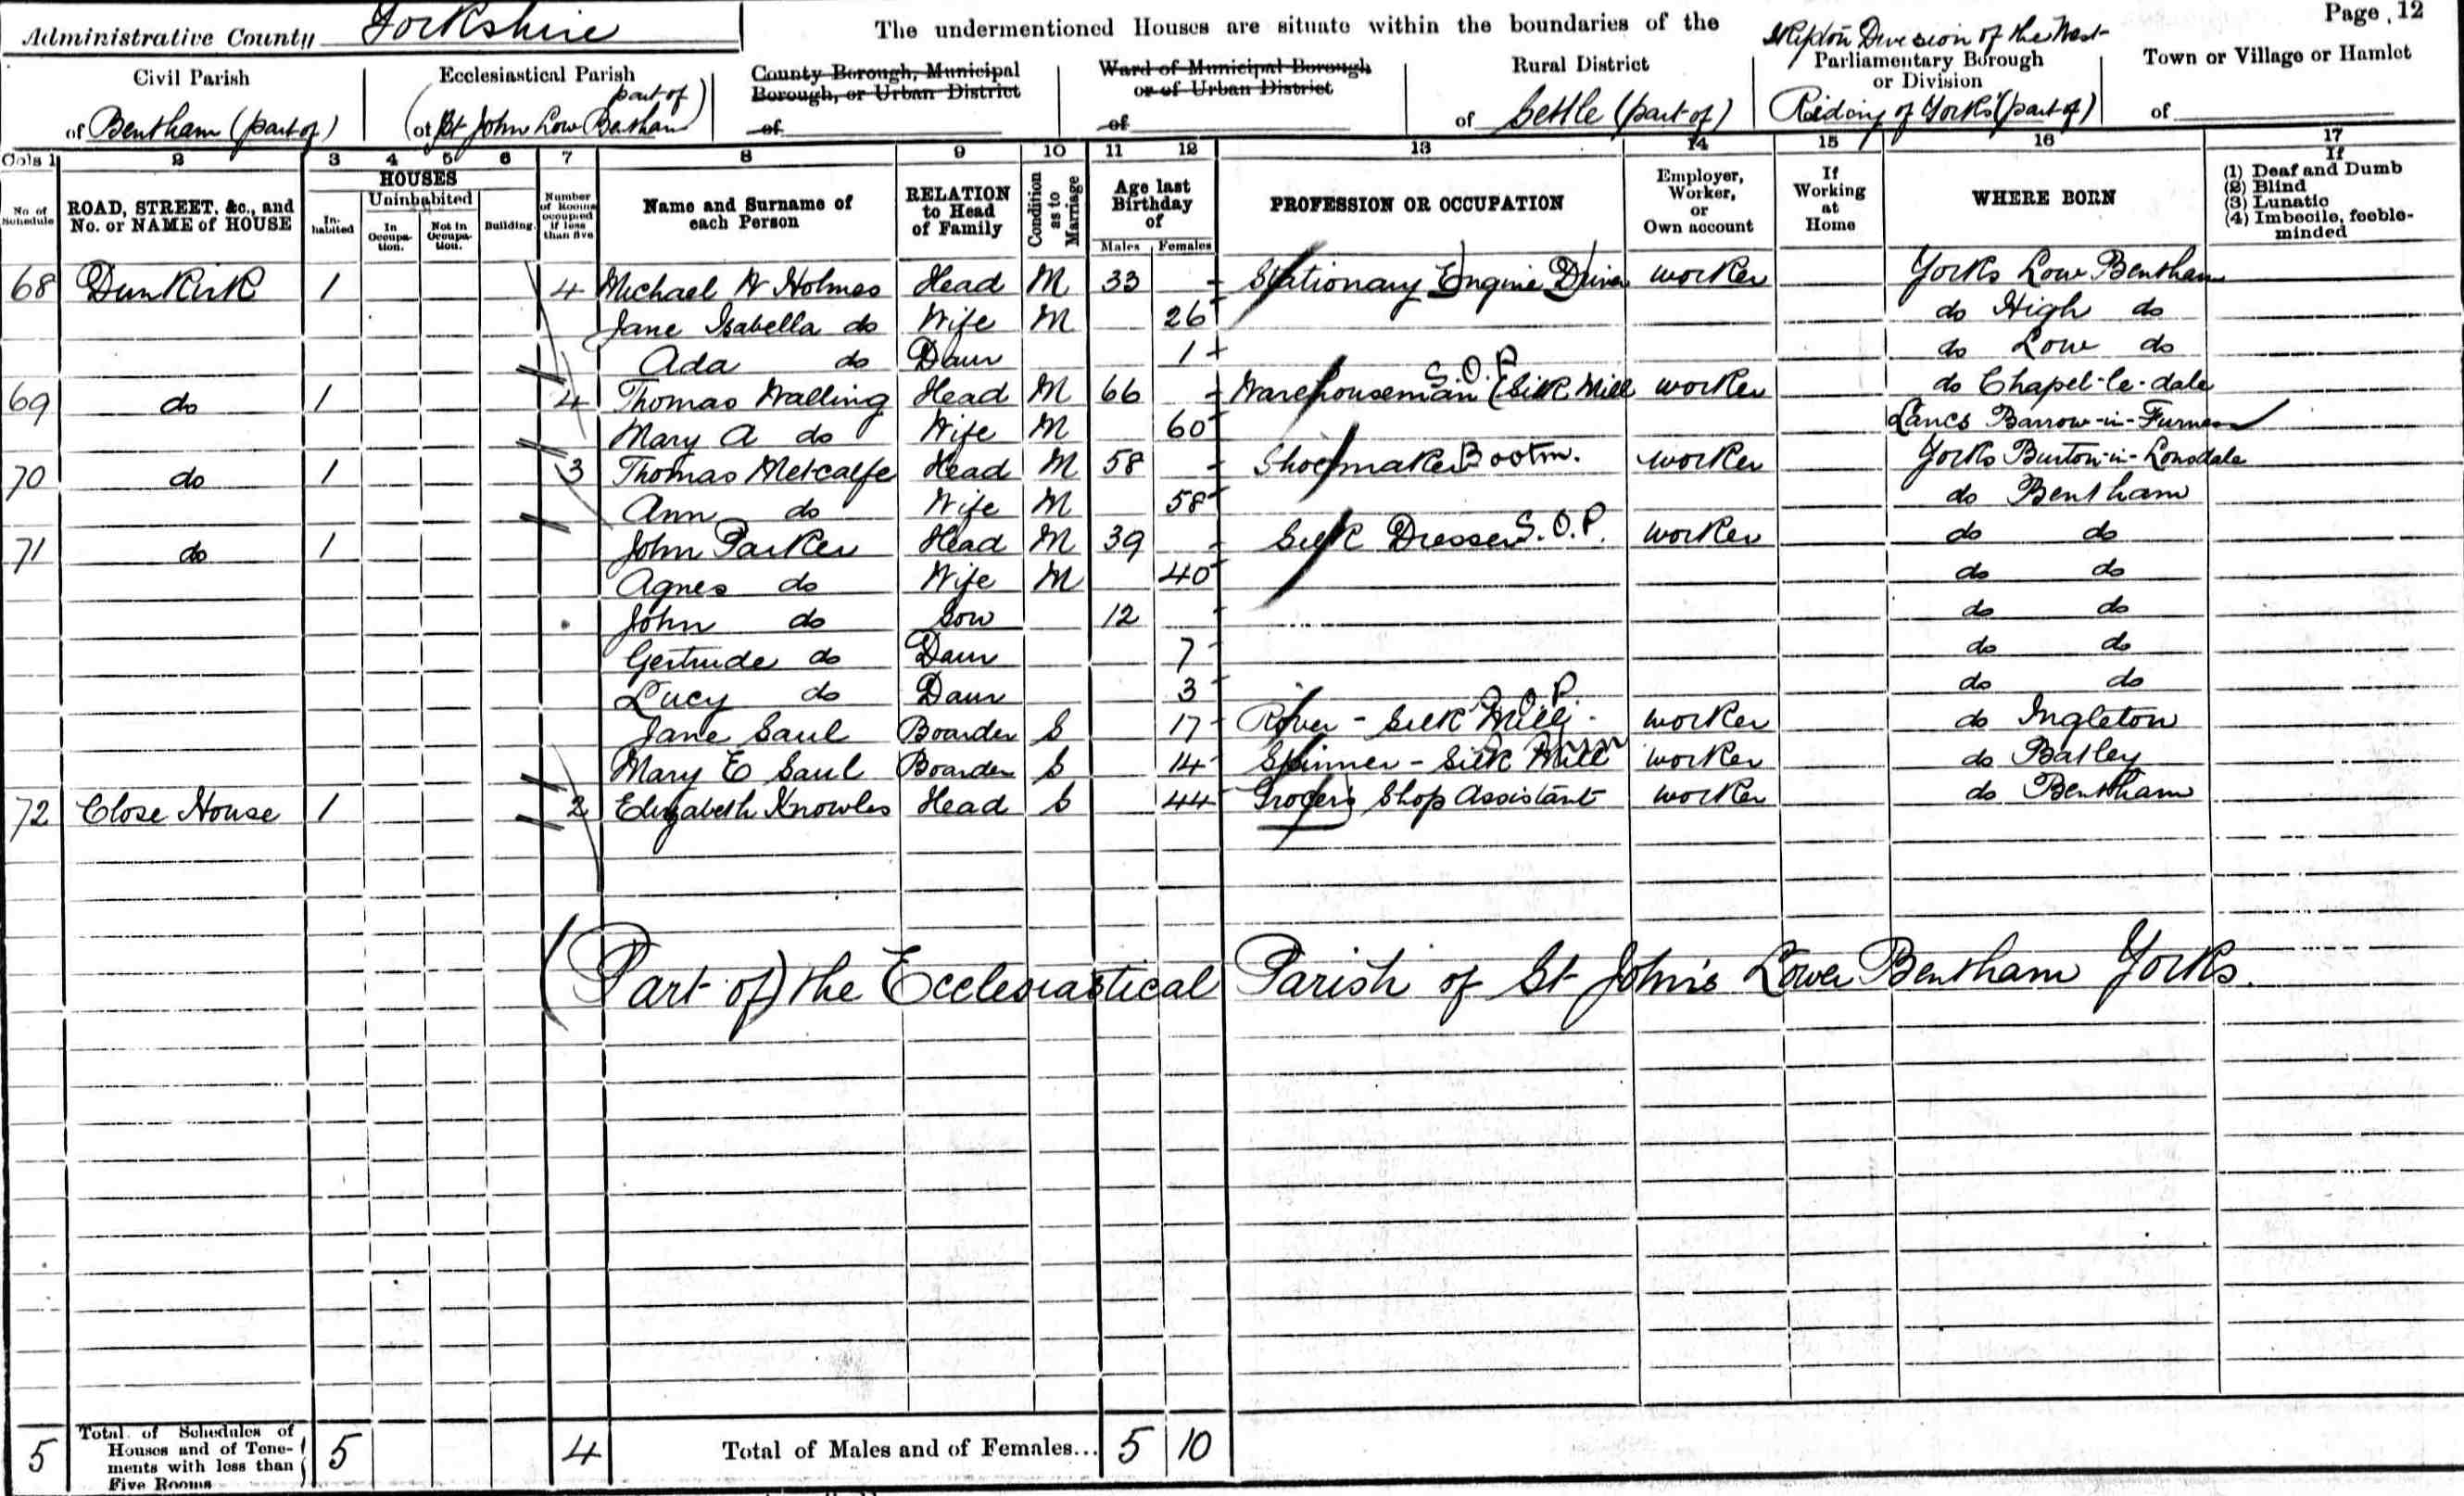 Page 12
Administrative County Yorkshire
The undermentioned Houses are situate within the boundaries of the
Civil Parish
of Bentham (part of)
Ecclesiastical Parish
part of
of St John Low Bentham
County Borough, Municipal
Borough, or Urban District
of
Ward of Municipal Borough
or of Urban District
of
Rural District
of Settle (part of)
Skipton Division of the West
Parliamentary Borough
or Division
Riding of Yorks (part of)
Town or Village or Hamlet
of
Cols 1 2 3 4 5 6 7 8 9 10 11 12 13 14 15 16 17
No. of Schedule
ROAD, STREET, &c., and
No. or NAME of HOUSE
HOUSES
Inhabited
Uninhabited
In Occupation.
Not in Occupation.
Building.
Number of Rooms occupied if less than five
Name and Surname of
each Person
RELATION
to Head
of Family
Condition as to Marriage
Age last
Birthday
of
Males Females
PROFESSION OR OCCUPATION
Employer,
Worker,
or
Own account
If
Working
at
Home
WHERE BORN
If
(1) Deaf and Dumb
(2) Blind
(3) Lunatic
(4) Imbecile, feeble-
minded
68 Dunkirk 1 4 Michael W Holmes Head M 33 Stationary Engine Driver worker Yorks Low Bentham
Jane Isabella do Wife M 26 do High do
Ada do Daur 1 do Low do
69 do 1 4 Thomas Walling Head M 66 Warehouseman (Silk Mill S.O.P. worker do Chapel-le-dale
Mary A do Wife M 60 Lancs Barrow-in-Furness
70 do 1 3 Thomas Metcalfe Head M 58 Shoemaker Bootm. worker Yorks Burton-in-Lonsdale
Ann do Wife M 58 do Bentham
71 do 1 John Parker Head M 39 Silk Dresser S.O.P. worker do do
Agnes do Wife M 40 do do
John do Son 12 do do
Gertrude do Daur 7 do do
Lucy do Daur 3 do do
Jane Saul Boarder S 17 Rover - Silk Mill worker do Ingleton
Mary E Saul Boarder S 14 Spinner - Silk Mill worker do Batley
72 Close House 1 2 Elizabeth Knowles Head S 44 Grocer's Shop Assistant worker do Bentham
(Part of) the Ecclesiastical Parish of St John's Lower Bentham Yorks.
5 Total of Schedules of
Houses and of Tene-
ments with less than
Five Rooms
5 4 Total of Males and of Females... 5 10